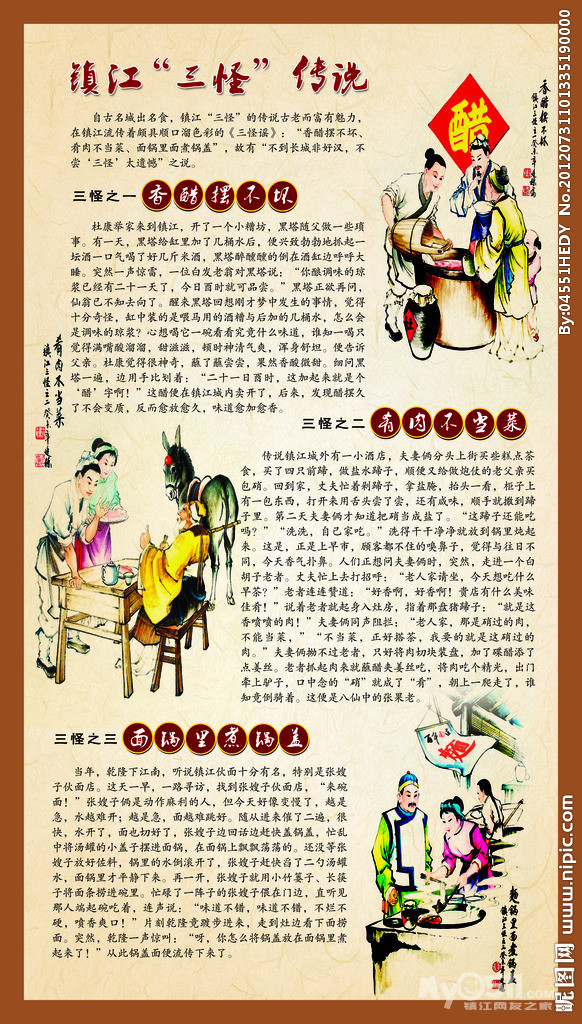 镇江“三怪”传说
自古名城出名食，镇江“三怪”的传说古老而富有魅力，
在镇江流传着颇具顺口溜色彩的《三怪谣》：“香醋摆不坏、
肴肉不当菜、面锅里面煮锅盖”，故有“不到长城非好汉，不
尝‘三怪’太遗憾”之说。
三怪之一 香醋摆不坏
杜康举家来到镇江，开了一个小糟坊，黑塔随父做一些琐
事。有一天，黑塔给缸里加了几桶水后，便兴致勃勃地抓起一
坛酒一口气喝了好几斤米酒，黑塔醉醺醺的倒在酒缸边呼呼大
睡。突然一声惊雷，一位白发老翁对黑塔说：“你酿调味的琼
浆已经有二十一天了，今日酉时就可品尝。”黑塔正欲再问，
仙翁已不知去向了。醒来黑塔回想刚才梦中发生的事情，觉得
十分奇怪，缸中装的是喂马用的酒糟与后加的几桶水，怎么会
是调味的琼浆？心想喝它一碗看看究竟什么味道，谁知一喝只
觉得满嘴酸溜溜，甜滋滋，顿时神清气爽，浑身舒坦。便告诉
父亲。杜康觉得很神奇，蘸了蘸尝尝，果然香酸微甜。细问黑
塔一遍，边用手比划着：“二十一日酉时，这加起来就是个
‘醋’字啊！”这醋便在镇江城内卖开了，后来，发现醋摆久
了不会变质，反而愈放愈久，味道愈加愈香。
三怪之二 肴肉不当菜
传说镇江城外有一小酒店，夫妻俩分头上街买些糕点茶
食，买了四只前蹄，做盐水蹄子，顺便又给做炮仗的老父亲买
包硝。回到家，丈夫忙着剁蹄子，拿盐腌，抬头一看，柜子上
有一包东西，打开来用舌头尝了尝，还有咸味，顺手就撒到蹄
子里。第二天夫妻俩才知道把硝当成盐了。“这蹄子还能吃
吗？”“洗洗，自己家吃。”洗得干干净净就放到锅里炖起
来。这是，正是上早市，顾客都不住的嗅鼻子，觉得与往日不
同，今天香气扑鼻。人们正想问夫妻俩时，突然，走进一个白
胡子老者。丈夫忙上去打招呼：“老人家请坐，今天想吃什么
早茶？”老者连连赞道：“好香啊，好香啊！贵店有什么美味
佳肴！”说着老者就起身入灶房，指着那盘猪蹄子：“就是这
香喷喷的肉！”夫妻俩同声阻拦：“老人家，那是硝过的肉，
不能当菜，”“不当菜，正好搭茶，我要的就是这硝过的
肉。”夫妻俩拗不过老者，只好将肉切块装盘，加了碟醋添了
点姜丝。老者抓起肉来就蘸醋夹姜丝吃，将肉吃个精光，出门
牵上驴子，口中念的“硝”就成了“肴”，朝上一爬走了，谁
知竟倒骑着。这便是八仙中的张果老。
三怪之三 面锅里煮锅盖
当年，乾隆下江南，听说镇江伏面十分有名，特别是张嫂
子伏面店。这天一早，一路寻访，找到张嫂子伏面店，“来碗
面！”张嫂子俩是动作麻利的人，但今天好像变慢了，越是
急，水越难开；越是急，面越难跳好。随从进来催了二遍，很
快，水开了，面也切好了，张嫂子边回话边赶快盖锅盖，忙乱
中将汤罐的小盖子撂进面锅，在面锅上飘飘荡荡的。还没等张
嫂子放好佐料，锅里的水倒滚开了，张嫂子赶快舀了二勺汤罐
水，面锅里才平静下来。再一开，张嫂子就用小竹篓子、长筷
子将面条捞进碗里。忙碌了一阵子的张嫂子偎在门边，直听见
那人端起碗吃着，连声说：“味道不错，味道不错，不烂不
硬，喷香爽口！”片刻乾隆竟踱步进来，走到灶边看下面捞
面。突然，乾隆一声惊叫：“呀，你怎么将锅盖放在面锅里煮
起来了！”从此锅盖面便流传下来了。
醋
香醋摆不坏
肴肉不当菜
面锅里面煮锅盖
百年
面
By:04551HEDY No.20120731101335190000
昵图网 www.nipic.com
镇江网友之家